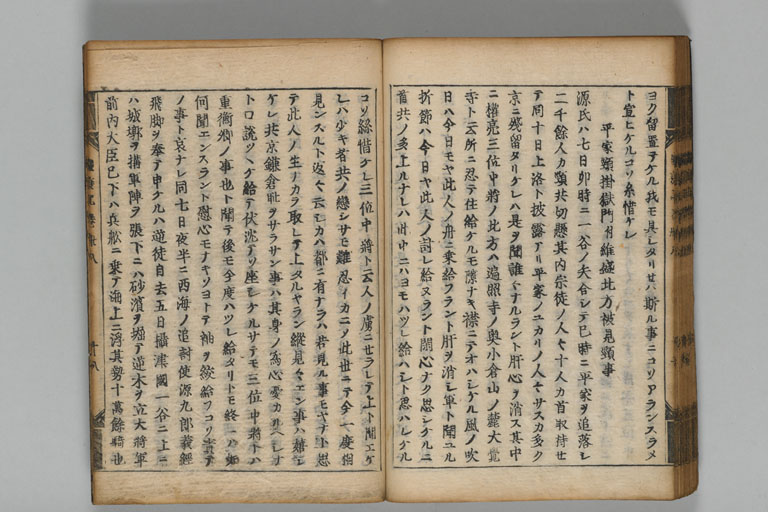 ヨク留置テケル我モ具シタリセハ斯ル事ニコソアランスラメ
ト宣ヒケルコソ糸惜ケレ
平家頸掛獄門付維盛北方被見頸事
源氏ハ七日卯時ニ一谷ノ矢合シテ巳時ニ平家ヲ追落シ
二千餘人カ頸共切懸其内宗徒ノ人々十人カ首取持セ
テ同十日上洛ト披露アリ平家ノユカリノ人々サスカ多ク
京ニ残留タリケレハ是ヲ聞誰々ナルラント肝心ヲ消ス其中
ニ權亮三位中將ノ北方ハ遍照寺ノ奥小倉山ノ麓大覺
寺ト云所ニ忍テ住給ケルモ隙ナキ襟ニテオハシケル風ノ吹
日ハ今日モヤ此人ノ舟ニ乗給フラント肝ヲ消シ軍ト聞ユル
折節ハ今日ヤ此人ノ討レ給ヌラント閑心ナク思シケルニ
首共ノ多上ルナレハ此中ニハヨモハツレ給ハシト思ハレケル
コソ糸惜ケレ三位中將ト云人ノ虜ニセラレテ上ト聞エケ
レハ少キ者共ノ戀シサモ難忍イカニシ此世ニテ今一度相
見ンスルト返々云シカハ都ニ有ナラハ若見ル事モヤナト思
テ此人ノ生ナカラ取レテ上タルヤラン縦見々エン事ハ嬉シ
ケレ共京鎌倉耻ヲサラサン事ハ其身ノ為心憂カリヘシナ
トロ説ツヽケ給テ伏沈テソ座シケルサテモ三位中將トハ
重衡卿ノ事也ト聞テ後モ今度ハツレ給タリトモ終ニハ
何聞エンスラント慰心モナキソヨトテ袖ヲ絞給フコソ
ノ事ト哀ナレ同七日夜半ニ西海ノ追討使源九郎義經
飛脚ヲ奉テ申ケルハ逆徒自去五日攝津國一谷ニ上ニ
ハ城墎ヲ搆軍陣ヲ張下ニハ砂濱ヲ堀テ逆木ヲ立大將軍
前内大臣已下ハ兵舩ニ乗テ海上ニ浮其勢十萬餘騎也